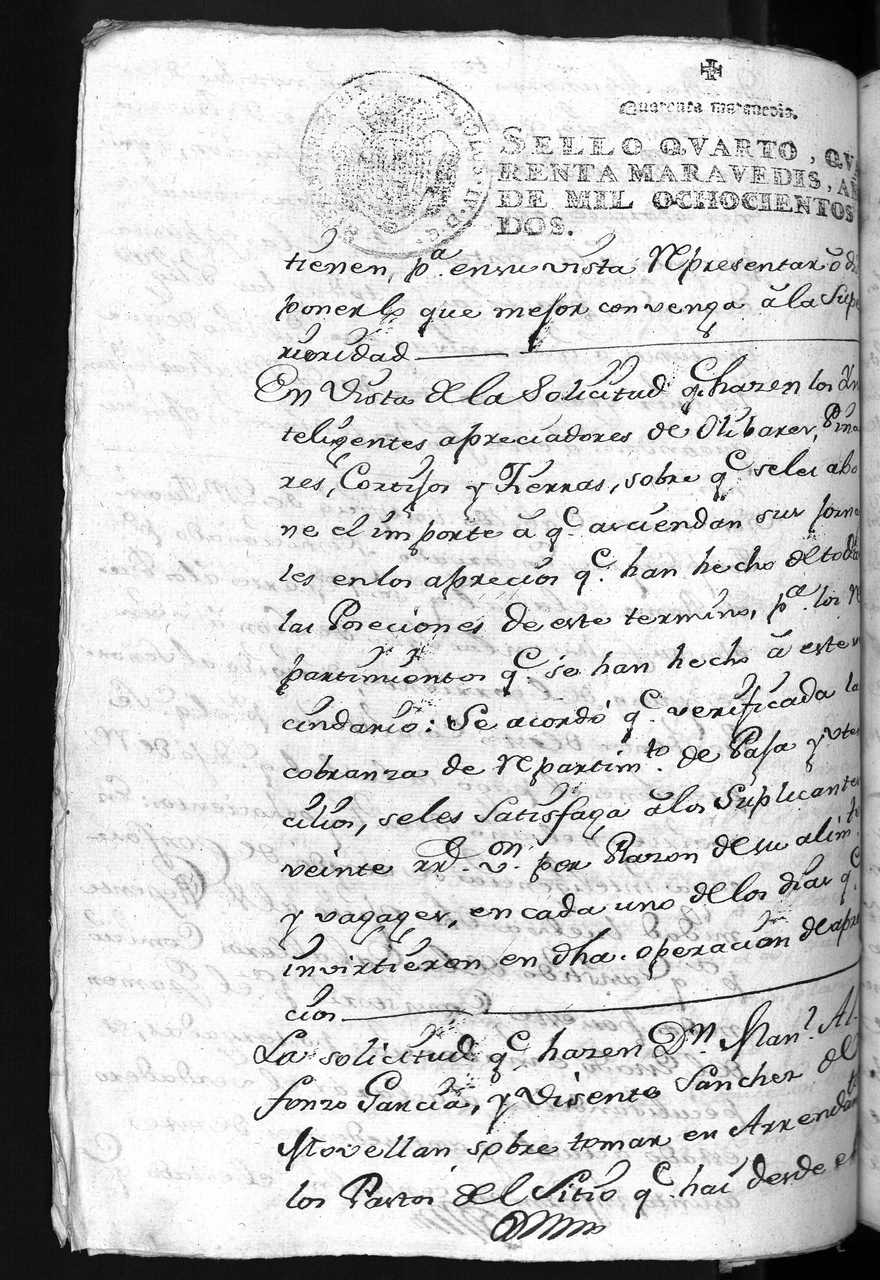 Quarenta maravedis.
SELLO QVARTO, QVA
RENTA MARAVEDIS, AÑ
DE MIL OCHOCIENTOS
DOS.
CAROLUS IV D. G.
tienen, pa. en su vista Representar o dis
poner lo que mejor convenga â la Supe
rioridad
En Vista de la Solicitud qe. hazen los Yn
teligentes apreciadores de Olibares, Pina
res, Cortijos y Tierras, sobre qe. seles abo
ne el importe â qe. asciendan sus jorna
les en los aprecios qe. han hecho de todas
las Poseciones de este termino, pa. los Re
partimientos qe. se han hecho â este ve
cindario: Se acordó qe. verificada la
cobranza de Repartimto. de Paja y vten
cilios, seles satisfaga â los Suplicantes
veinte rrs. von. por Razon de su alimto.
y vagages, en cada uno de los dias qe.
invirtieron en dha. operacion de apre
cios
La solicitud qe. hazen Dn. Manl. Al-
fonzo Garcia, y Visente Sanchez del
Movellan sobre tomar en Arrendamto.
los Pastos del Sitio qe. hai desde el